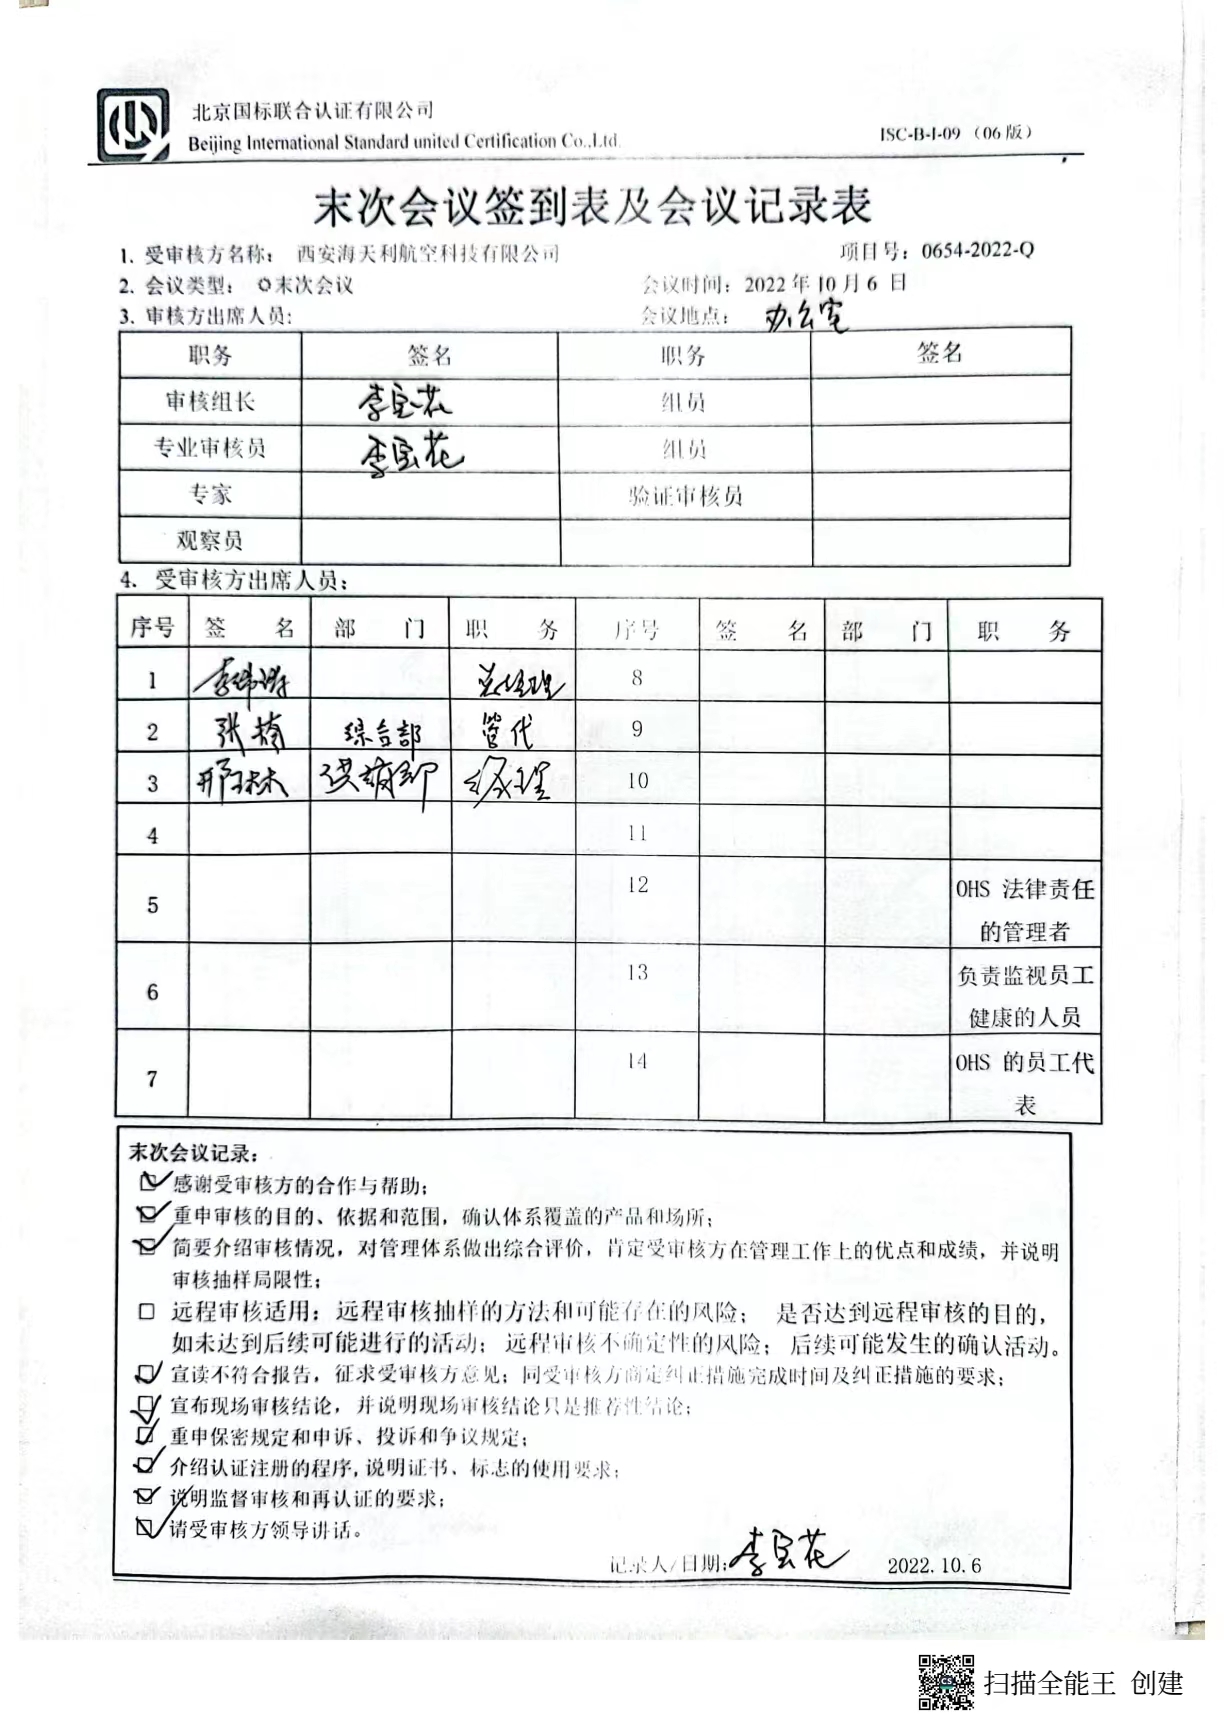 北京国标联合认证有限公司
Beijing International Standard united Certification Co.,Ltd.
ISC-B-I-09（06版）
末次会议签到表及会议记录表
1. 受审核方名称： 西安海天利航空科技有限公司 项目号：0654-2022-Q
2. 会议类型： 末次会议 会议时间：2022年10月6 日
3. 审核方出席人员： 会议地点： 办公室
职务 签名 职务 签名
审核组长 李宝花 组员
专业审核员 李宝花 组员
专家 验证审核员
观察员
4. 受审核方出席人员：
序号 签 名 部 门 职 务 序号 签 名 部 门 职 务
1 总经理 8
2 张楠 综合部 管代 9
3 邢林林 供销部 经理 10
4 11
5 12 OHS 法律责任
的管理者
6 13 负责监视员工
健康的人员
7 14 OHS 的员工代
表
末次会议记录：
☑感谢受审核方的合作与帮助；
☑重申审核的目的、依据和范围，确认体系覆盖的产品和场所；
☑简要介绍审核情况，对管理体系做出综合评价，肯定受审核方在管理工作上的优点和成绩，并说明
审核抽样局限性；
□ 远程审核适用：远程审核抽样的方法和可能存在的风险； 是否达到远程审核的目的，
如未达到后续可能进行的活动；远程审核不确定性的风险；后续可能发生的确认活动。
☑宣读不符合报告，征求受审核方意见；同受审核方商定纠正措施完成时间及纠正措施的要求；
☑宣布现场审核结论，并说明现场审核结论只是推荐性结论；
☑重申保密规定和申诉、投诉和争议规定；
☑介绍认证注册的程序,说明证书、标志的使用要求；
☑说明监督审核和再认证的要求；
☑请受审核方领导讲话。
记录人/日期:李宝花 2022.10.6
扫描全能王 创建